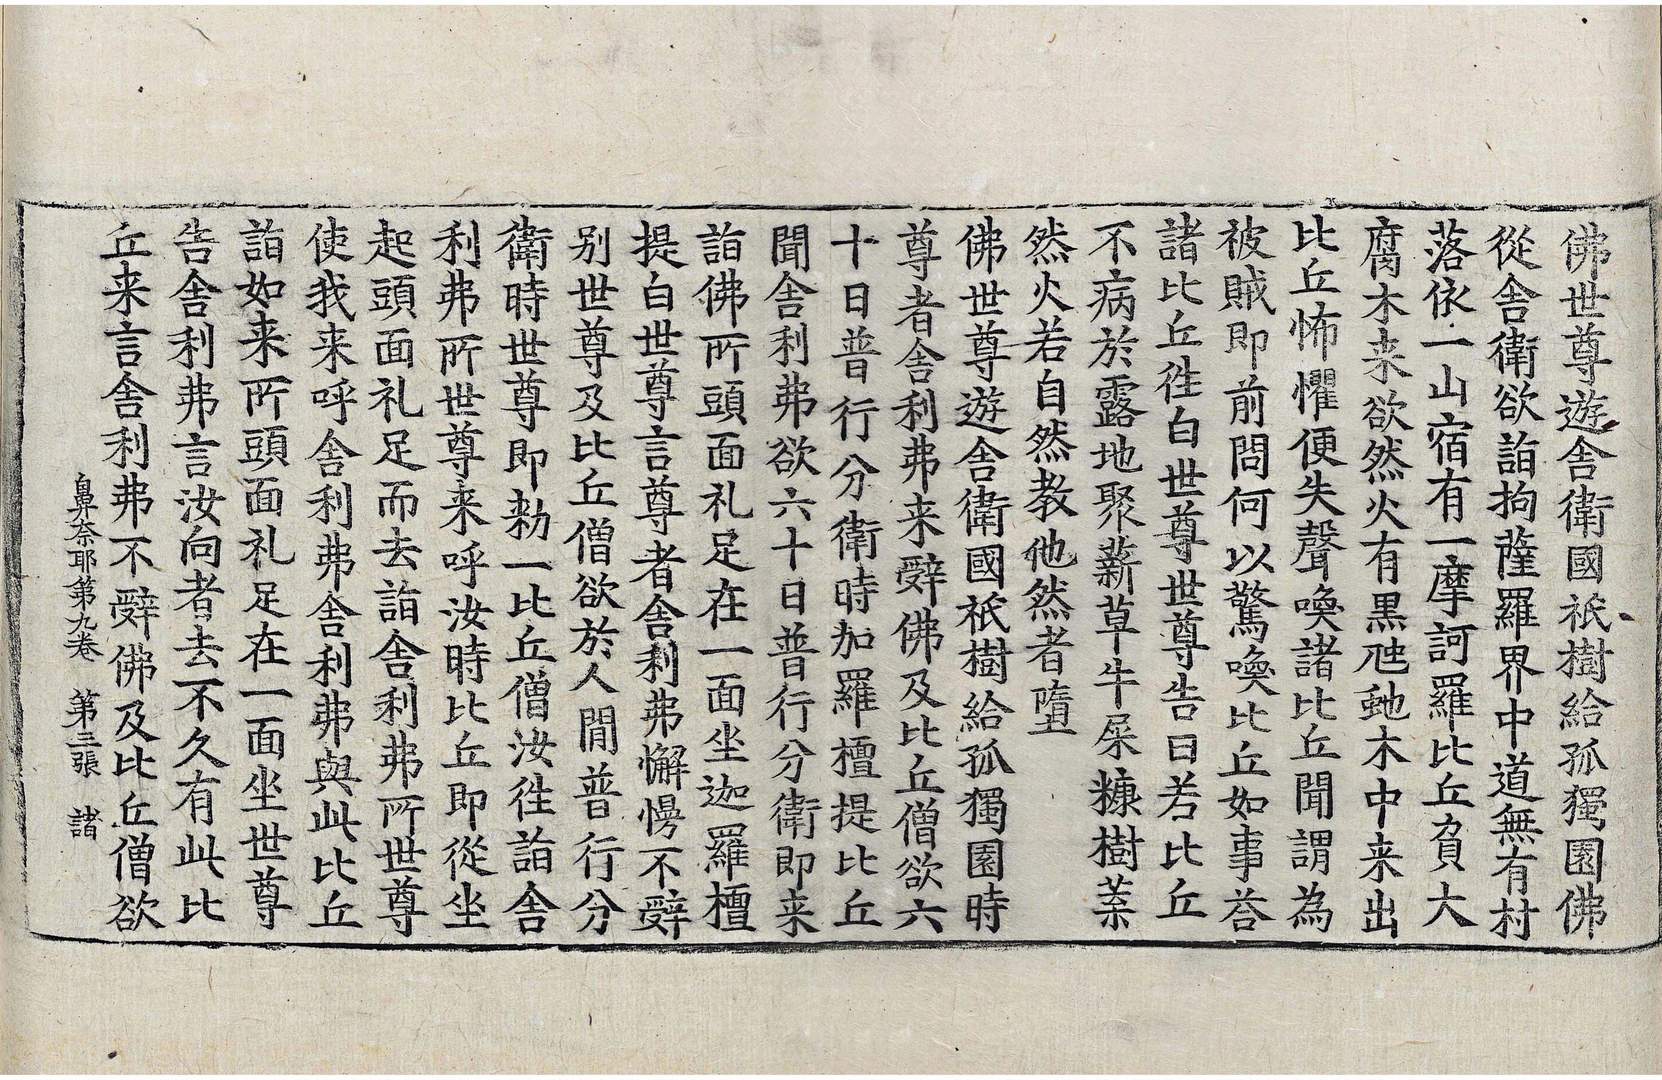 佛世尊遊舎衛國祇樹給孤獨園佛
從舎衛欲詣拘薩羅界中道無有村
落依一山宿有一摩訶羅比丘負大
腐木来欲然火有黒虵木中来出
比丘怖懼便失聲喚諸比丘聞謂為
被賊即前問何以驚喚比丘如事荅
諸比丘徃白世尊世尊告曰若比丘
不病於露地聚薪草牛屎糠樹葉
然火若自然教他然者墮
佛世尊遊舎衛國祇樹給孤獨園時
尊者舎利弗来辤佛及比丘僧欲六
十日普行分衛時加羅檀提比丘
聞舎利弗欲六十日普行分衛即来
詣佛所頭面礼足在一面坐迦羅檀
提白世尊言尊者舎利弗懈慢不辤
别世尊及比丘僧欲於人閒普行分
衛時世尊即勑一比丘僧汝徃詣舎
利弗所世尊来呼汝時比丘即從坐
起頭面礼足而去詣舎利弗所世尊
使我来呼舎利弗舎利弗與此比丘
詣如来所頭面礼足在一面坐世尊
告舎利弗言汝向者去不久有此比
丘来言舎利弗不辤佛及比丘僧欲
鼻奈耶第九卷 第三張 諸